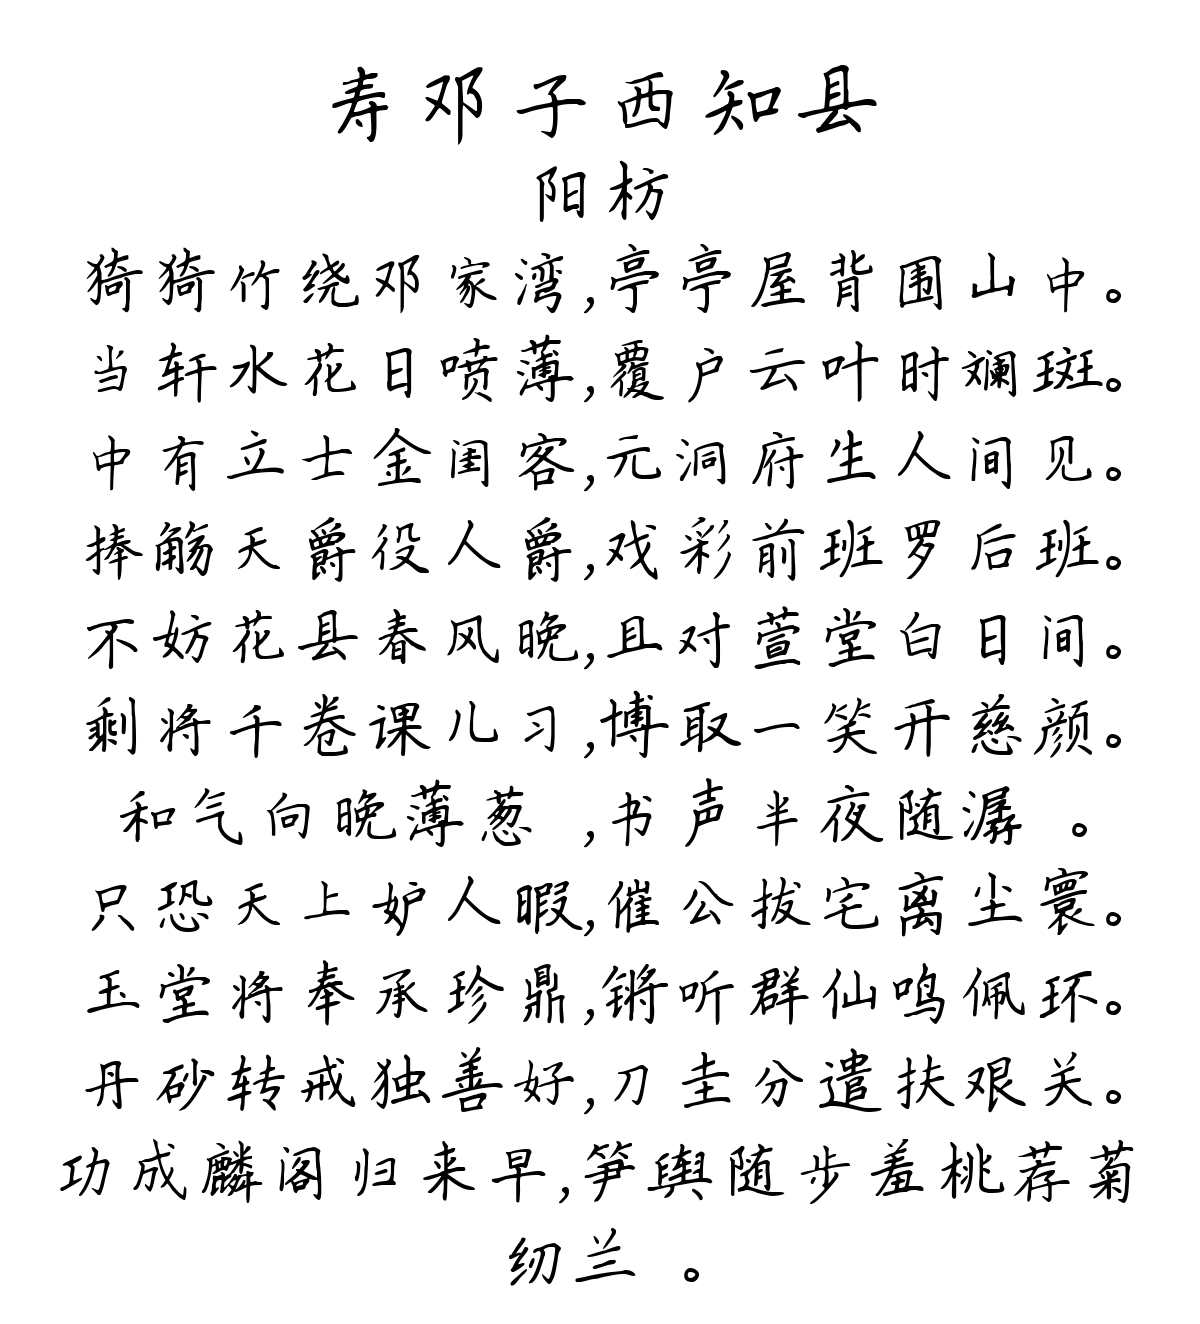 寿邓子西知县
阳枋
猗猗竹绕邓家湾,亭亭屋背围山中。
当轩水花日喷薄,覆户云叶时斓斑。
中有立士金闺客,元洞府生人间见。
捧觞天爵役人爵,戏彩前班罗后班。
不妨花县春风晚,且对萱堂白日间。
剩将千卷课儿习,博取一笑开慈颜。
和气向晚薄葱 ,书声半夜随潺 。
只恐天上妒人暇,催公拔宅离尘寰。
玉堂将奉承珍鼎,锵听群仙鸣佩环。
丹砂转戒独善好,刀圭分遣扶艰关。
功成麟阁归来早,笋舆随步羞桃荐菊
纫兰 。